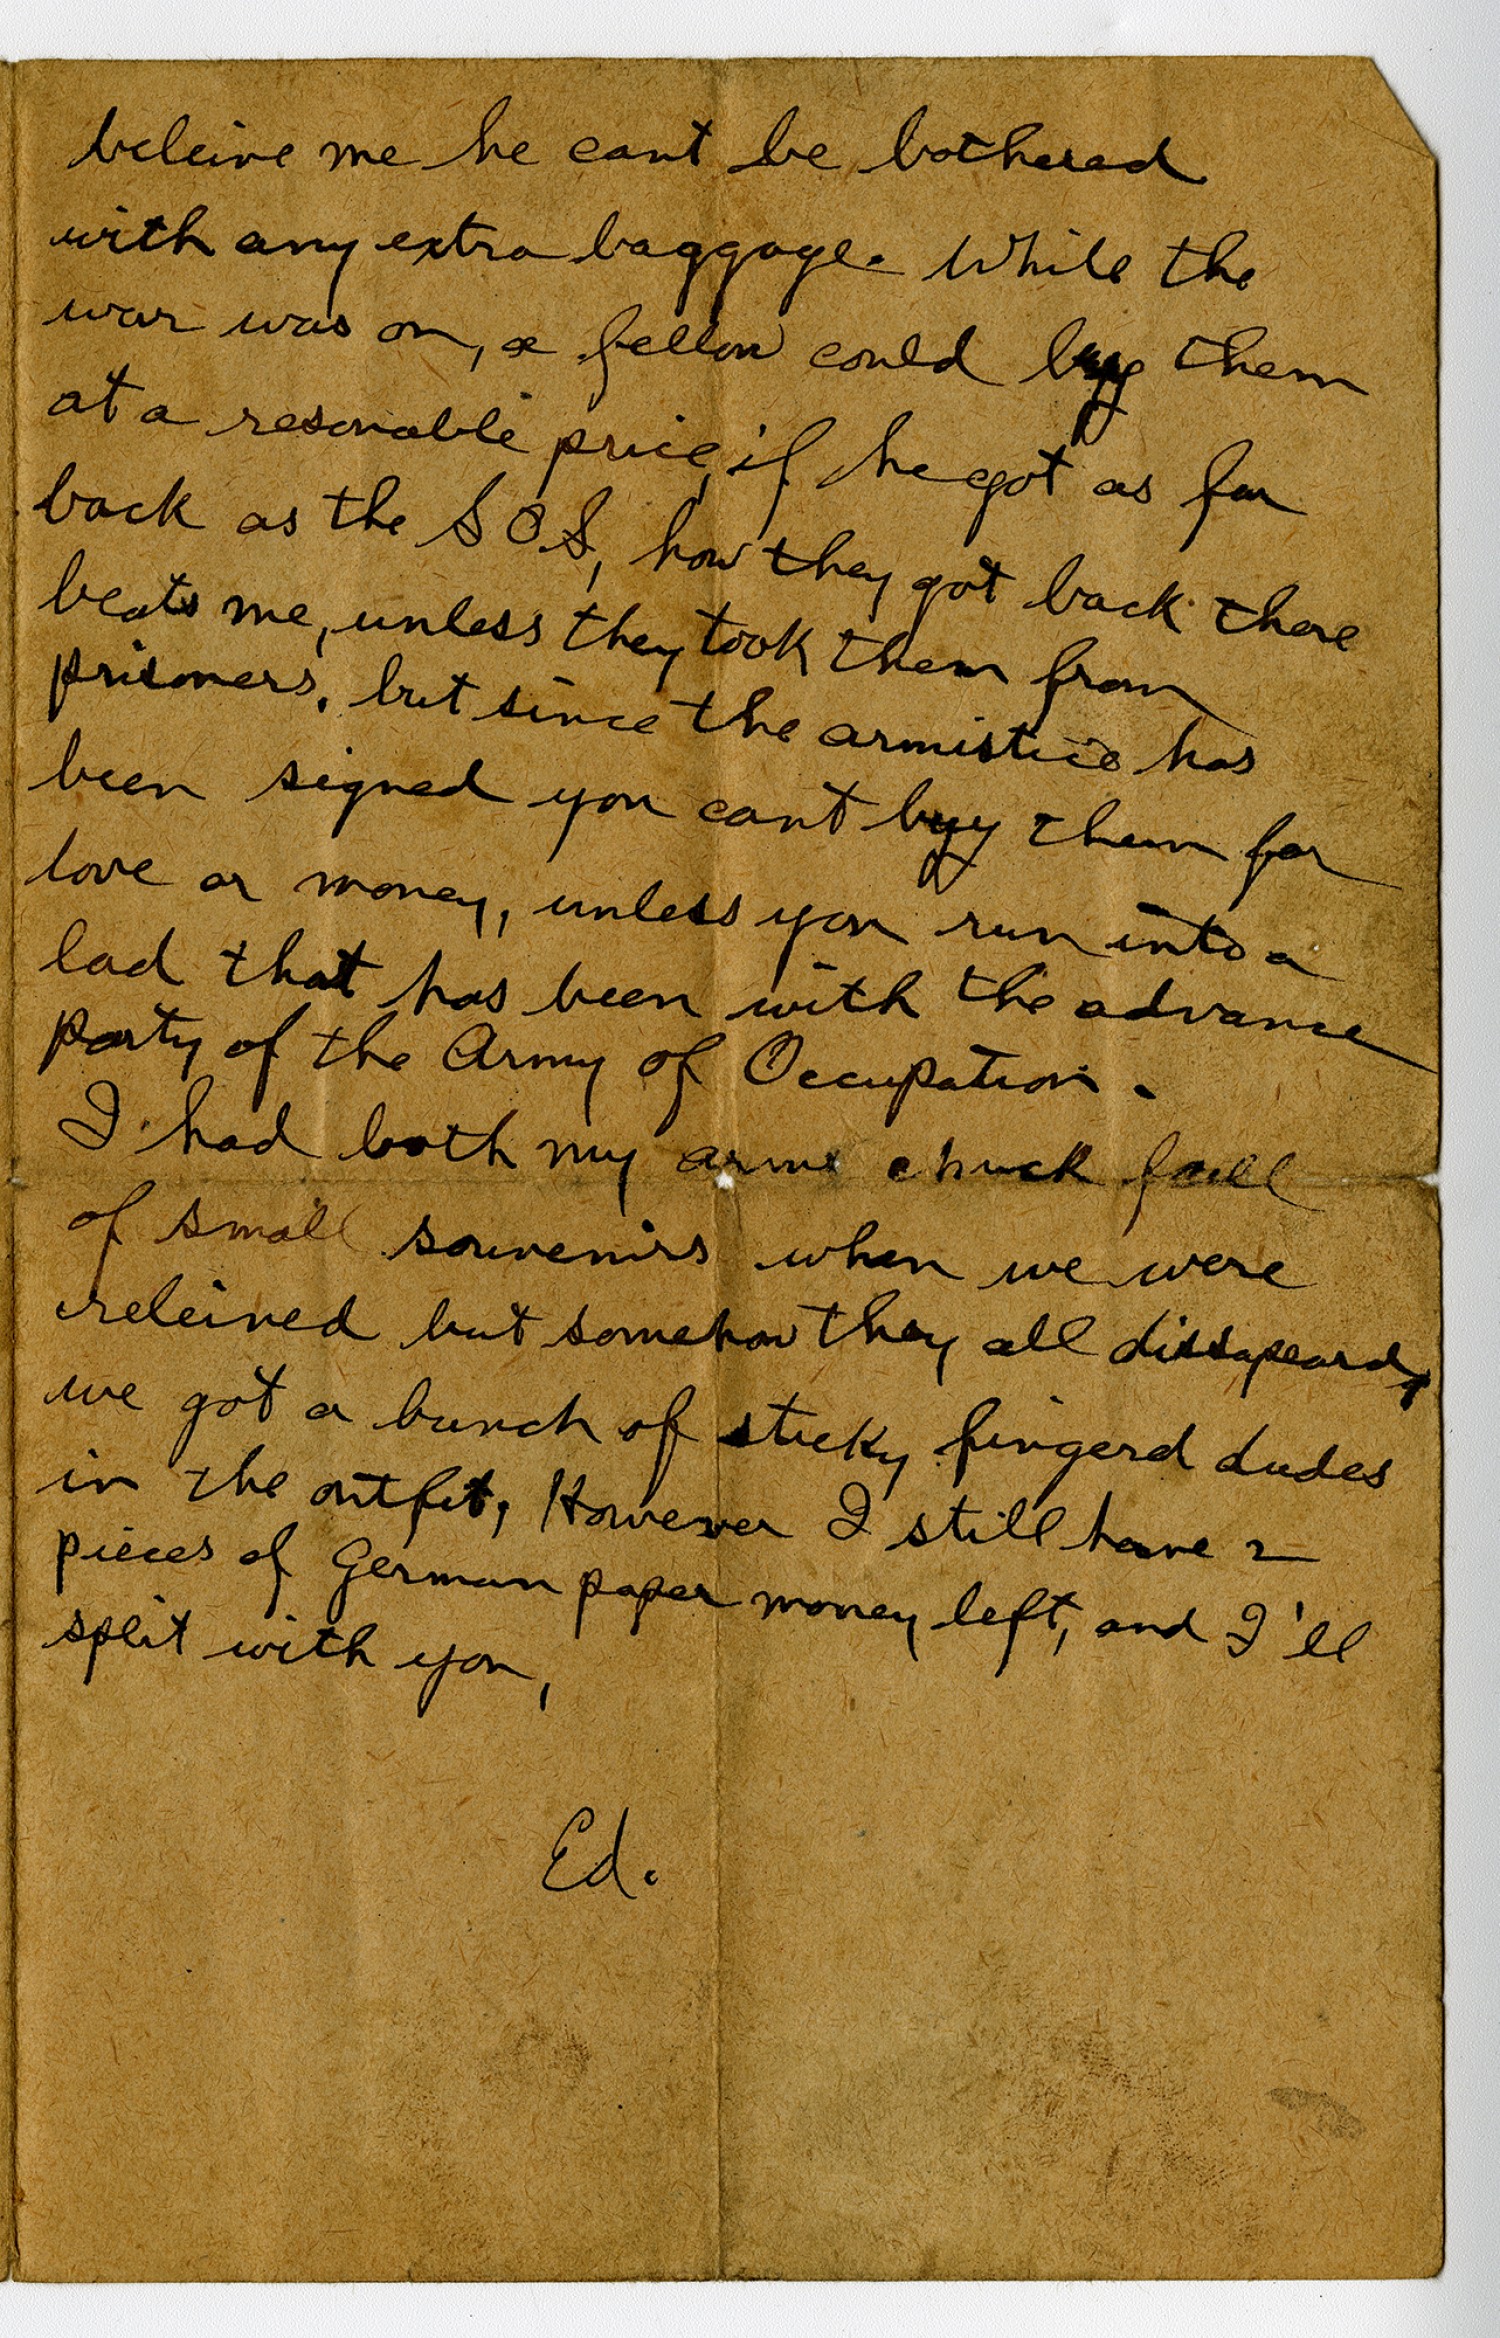 beleive me he cant be bothered
with any extra baggage. While the
war was on, a fellow could buy them
at a resonable price, if he got as far
back as the SOS, how they got back there
beats me, unless they took them from
prisoners. but since the armistice has
been signed you cant buy them for
love or money, unless you run into a
lad that has been with the advance
party of the Army of Occupation.
I had both my arms chuck full
of small souvenirs when we were
releived but somehow they all dissapeard,
we got a bunch of sticky fingerd dudes
in the outfit, However I still have 2
pieces of German paper money left, and I'll
split with you,
Ed.